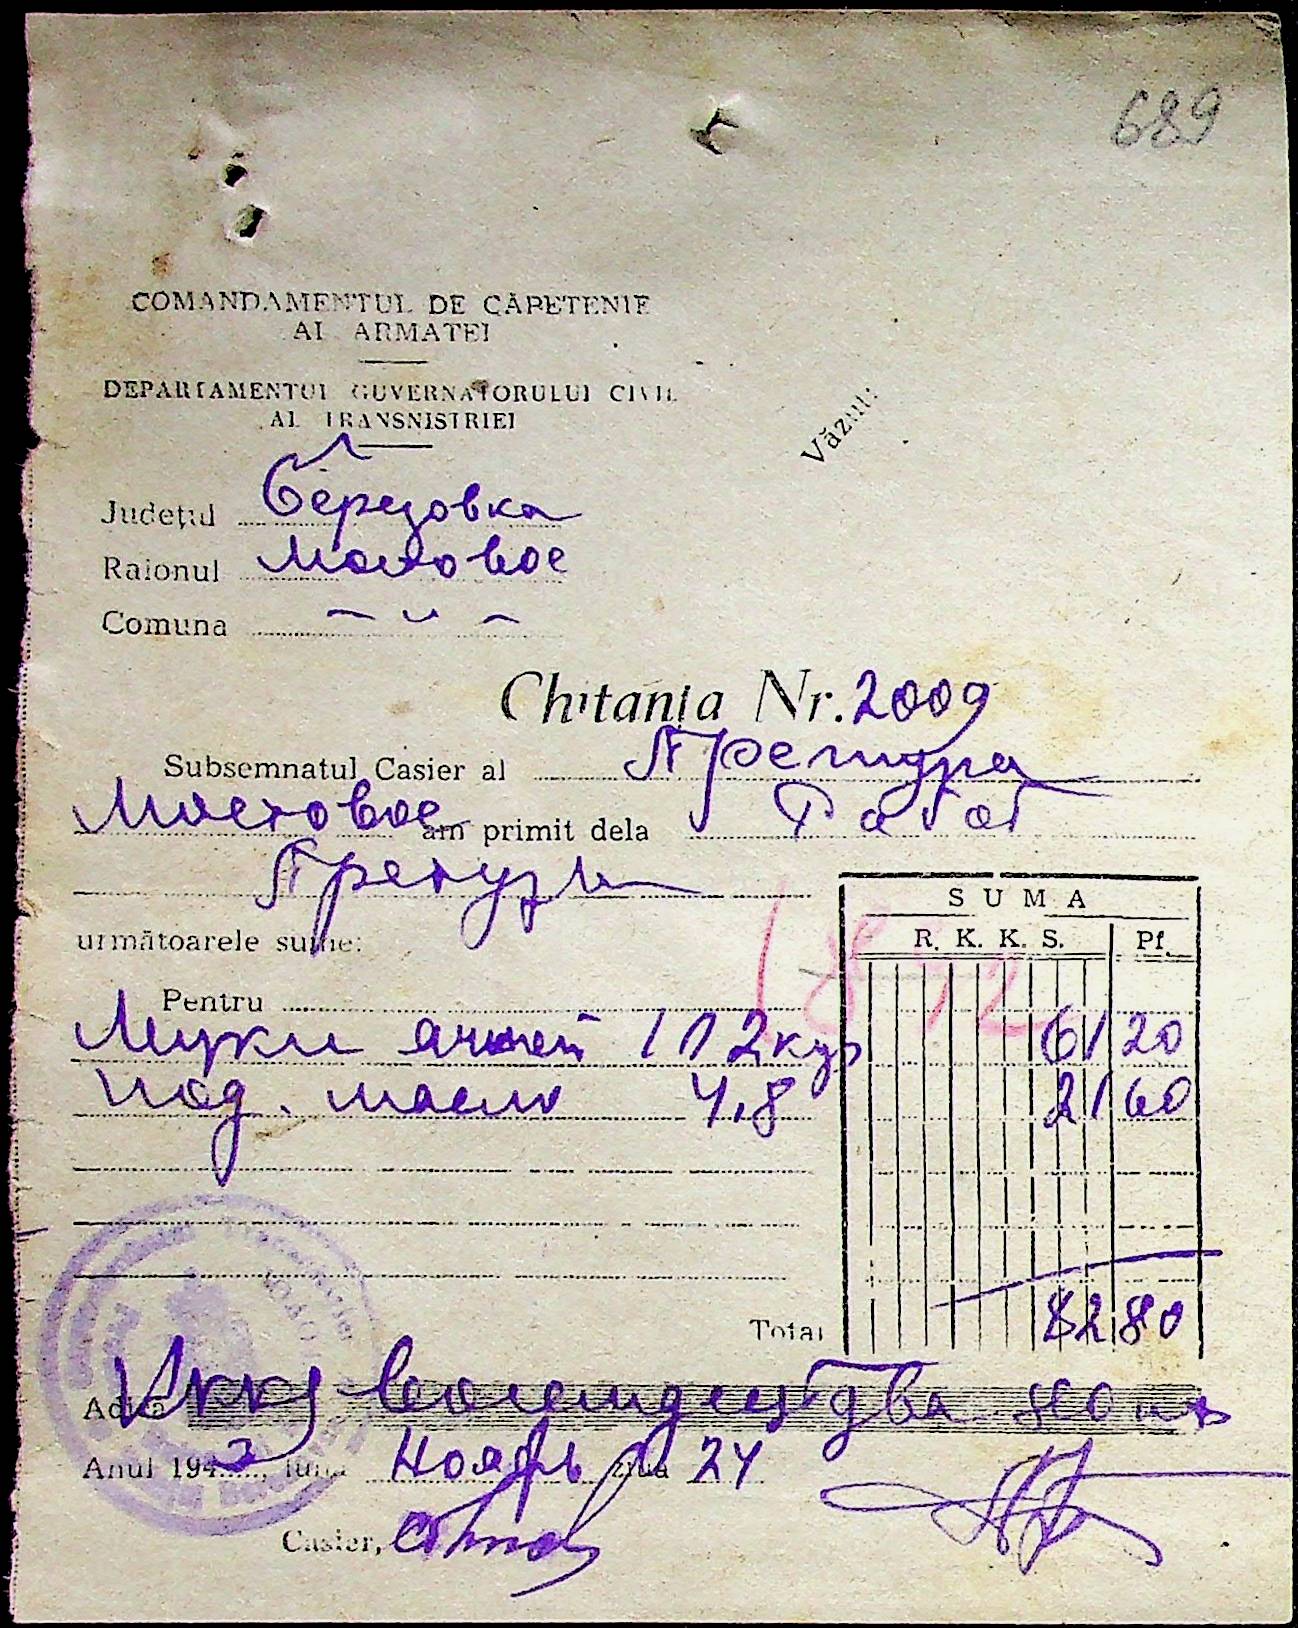 689
COMANDAMENTUL DE CĂPETENIE
AL ARMATEI
DEPARTAMENTUL GUVERNATORULUI CIVIL
AL TRANSNISTRIEI
Văzut:
Județul Березовка
Raionul Мостовое
Comuna – „ –
Chitanța Nr. 2009
Subsemnatul Casier al Претура
Мостовое am primit dela Работ
Претуры
următoarele sume:
SUMA
R. K. K. S. Pf.
Pentru
Муки ячной 102 кгр 61 20
под. масло 4,8 21 60
Total 82 80
Adică ИККС восемдесят два 80 пф
Anul 1942, luna Ноябрь ziua 24
Casier,